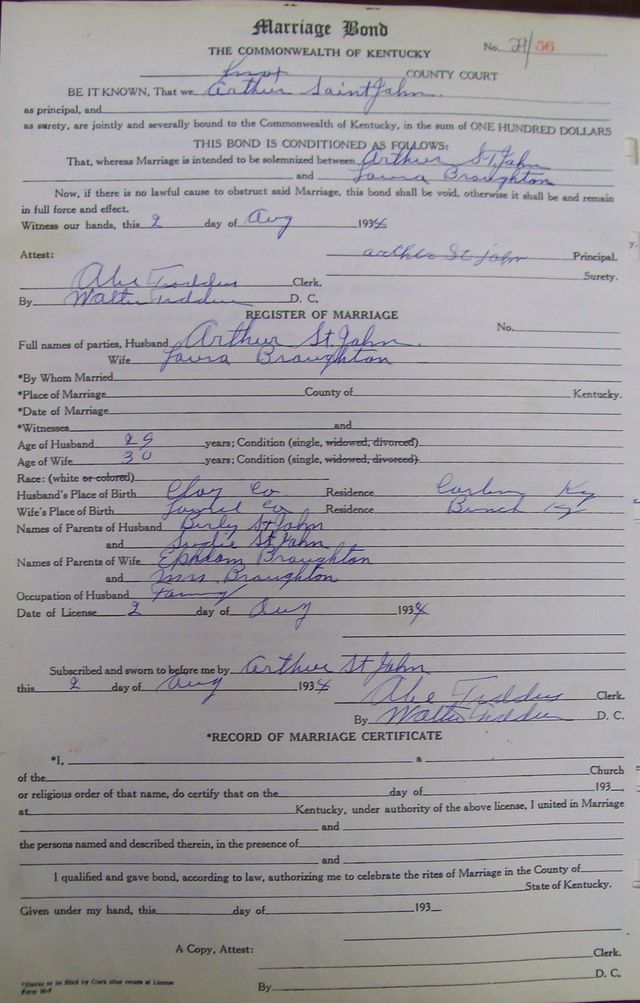 Marriage Bond
THE COMMONWEALTH OF KENTUCKY
No. 29/56
Knox COUNTY COURT
BE IT KNOWN, That we Arthur Saint John.
as principal, and
as surety, are jointly and severally bound to the Commonwealth of Kentucky, in the sum of ONE HUNDRED DOLLARS
THIS BOND IS CONDITIONED AS FOLLOWS:
That, whereas Marriage is intended to be solemnized between Arthur St. John
and Laura Braughton
Now, if there is no lawful cause to obstruct said Marriage, this bond shall be void, otherwise it shall be and remain
in full force and effect.
Witness our hands, this 2 day of Aug 1934
Attest: arther St john Principal.
Surety.
Abe Clerk.
By Walter D. C.
REGISTER OF MARRIAGE
No.
Full names of parties, Husband Arthur St. John.
Wife Laura Braughton
*By Whom Married
*Place of Marriage County of Kentucky.
*Date of Marriage
*Witnesses and
Age of Husband 29 years; Condition (single, widowed, divorced)
Age of Wife 30 years; Condition (single, widowed, divorced)
Race: (white or colored)
Husband's Place of Birth Clay Co Residence Ky
Wife's Place of Birth Laurel Co Residence Ky
Names of Parents of Husband St John
and Sudie St John
Names of Parents of Wife Braughton
and Mrs. Braughton
Occupation of Husband
Date of License 2 day of Aug 1934
Subscribed and sworn to before me by Arthur St John
this 2 day of Aug 1934
Abe Clerk.
By Walter D. C.
*RECORD OF MARRIAGE CERTIFICATE
*I, a
of the Church
or religious order of that name, do certify that on the day of 193
at Kentucky, under authority of the above license, I united in Marriage
and
the persons named and described therein, in the presence of
and
I qualified and gave bond, according to law, authorizing me to celebrate the rites of Marriage in the County of
State of Kentucky.
Given under my hand, this day of 193
A Copy, Attest: Clerk.
By D. C.
*Blanks to be filled by Clerk after return of License